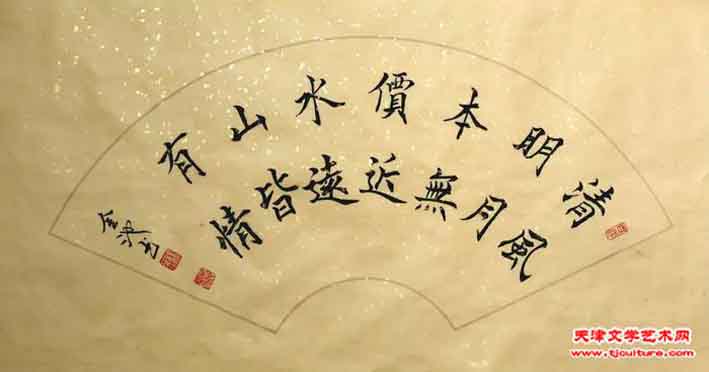 清風
明月
本無
價近
水遠
山皆
有情
天津文学艺术网
www.tjculture.com